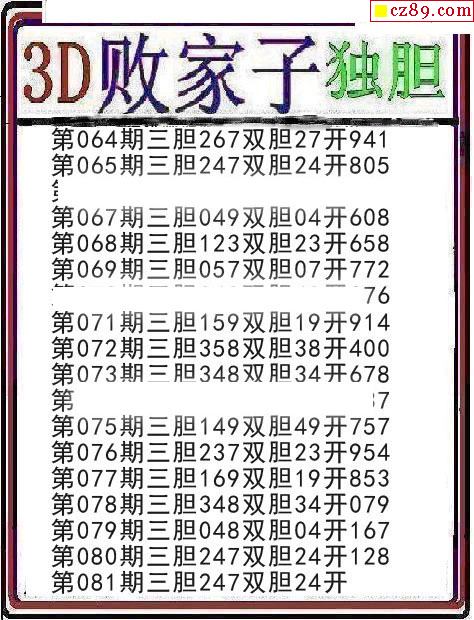 cz89.com
3D败家子独胆
第064期三胆267双胆27开941
第065期三胆247双胆24开805
第067期三胆049双胆04开608
第068期三胆123双胆23开658
第069期三胆057双胆07开772
76
第071期三胆159双胆19开914
第072期三胆358双胆38开400
第073期三胆348双胆34开678
第 37
第075期三胆149双胆49开757
第076期三胆237双胆23开954
第077期三胆169双胆19开853
第078期三胆348双胆34开079
第079期三胆048双胆04开167
第080期三胆247双胆24开128
第081期三胆247双胆24开